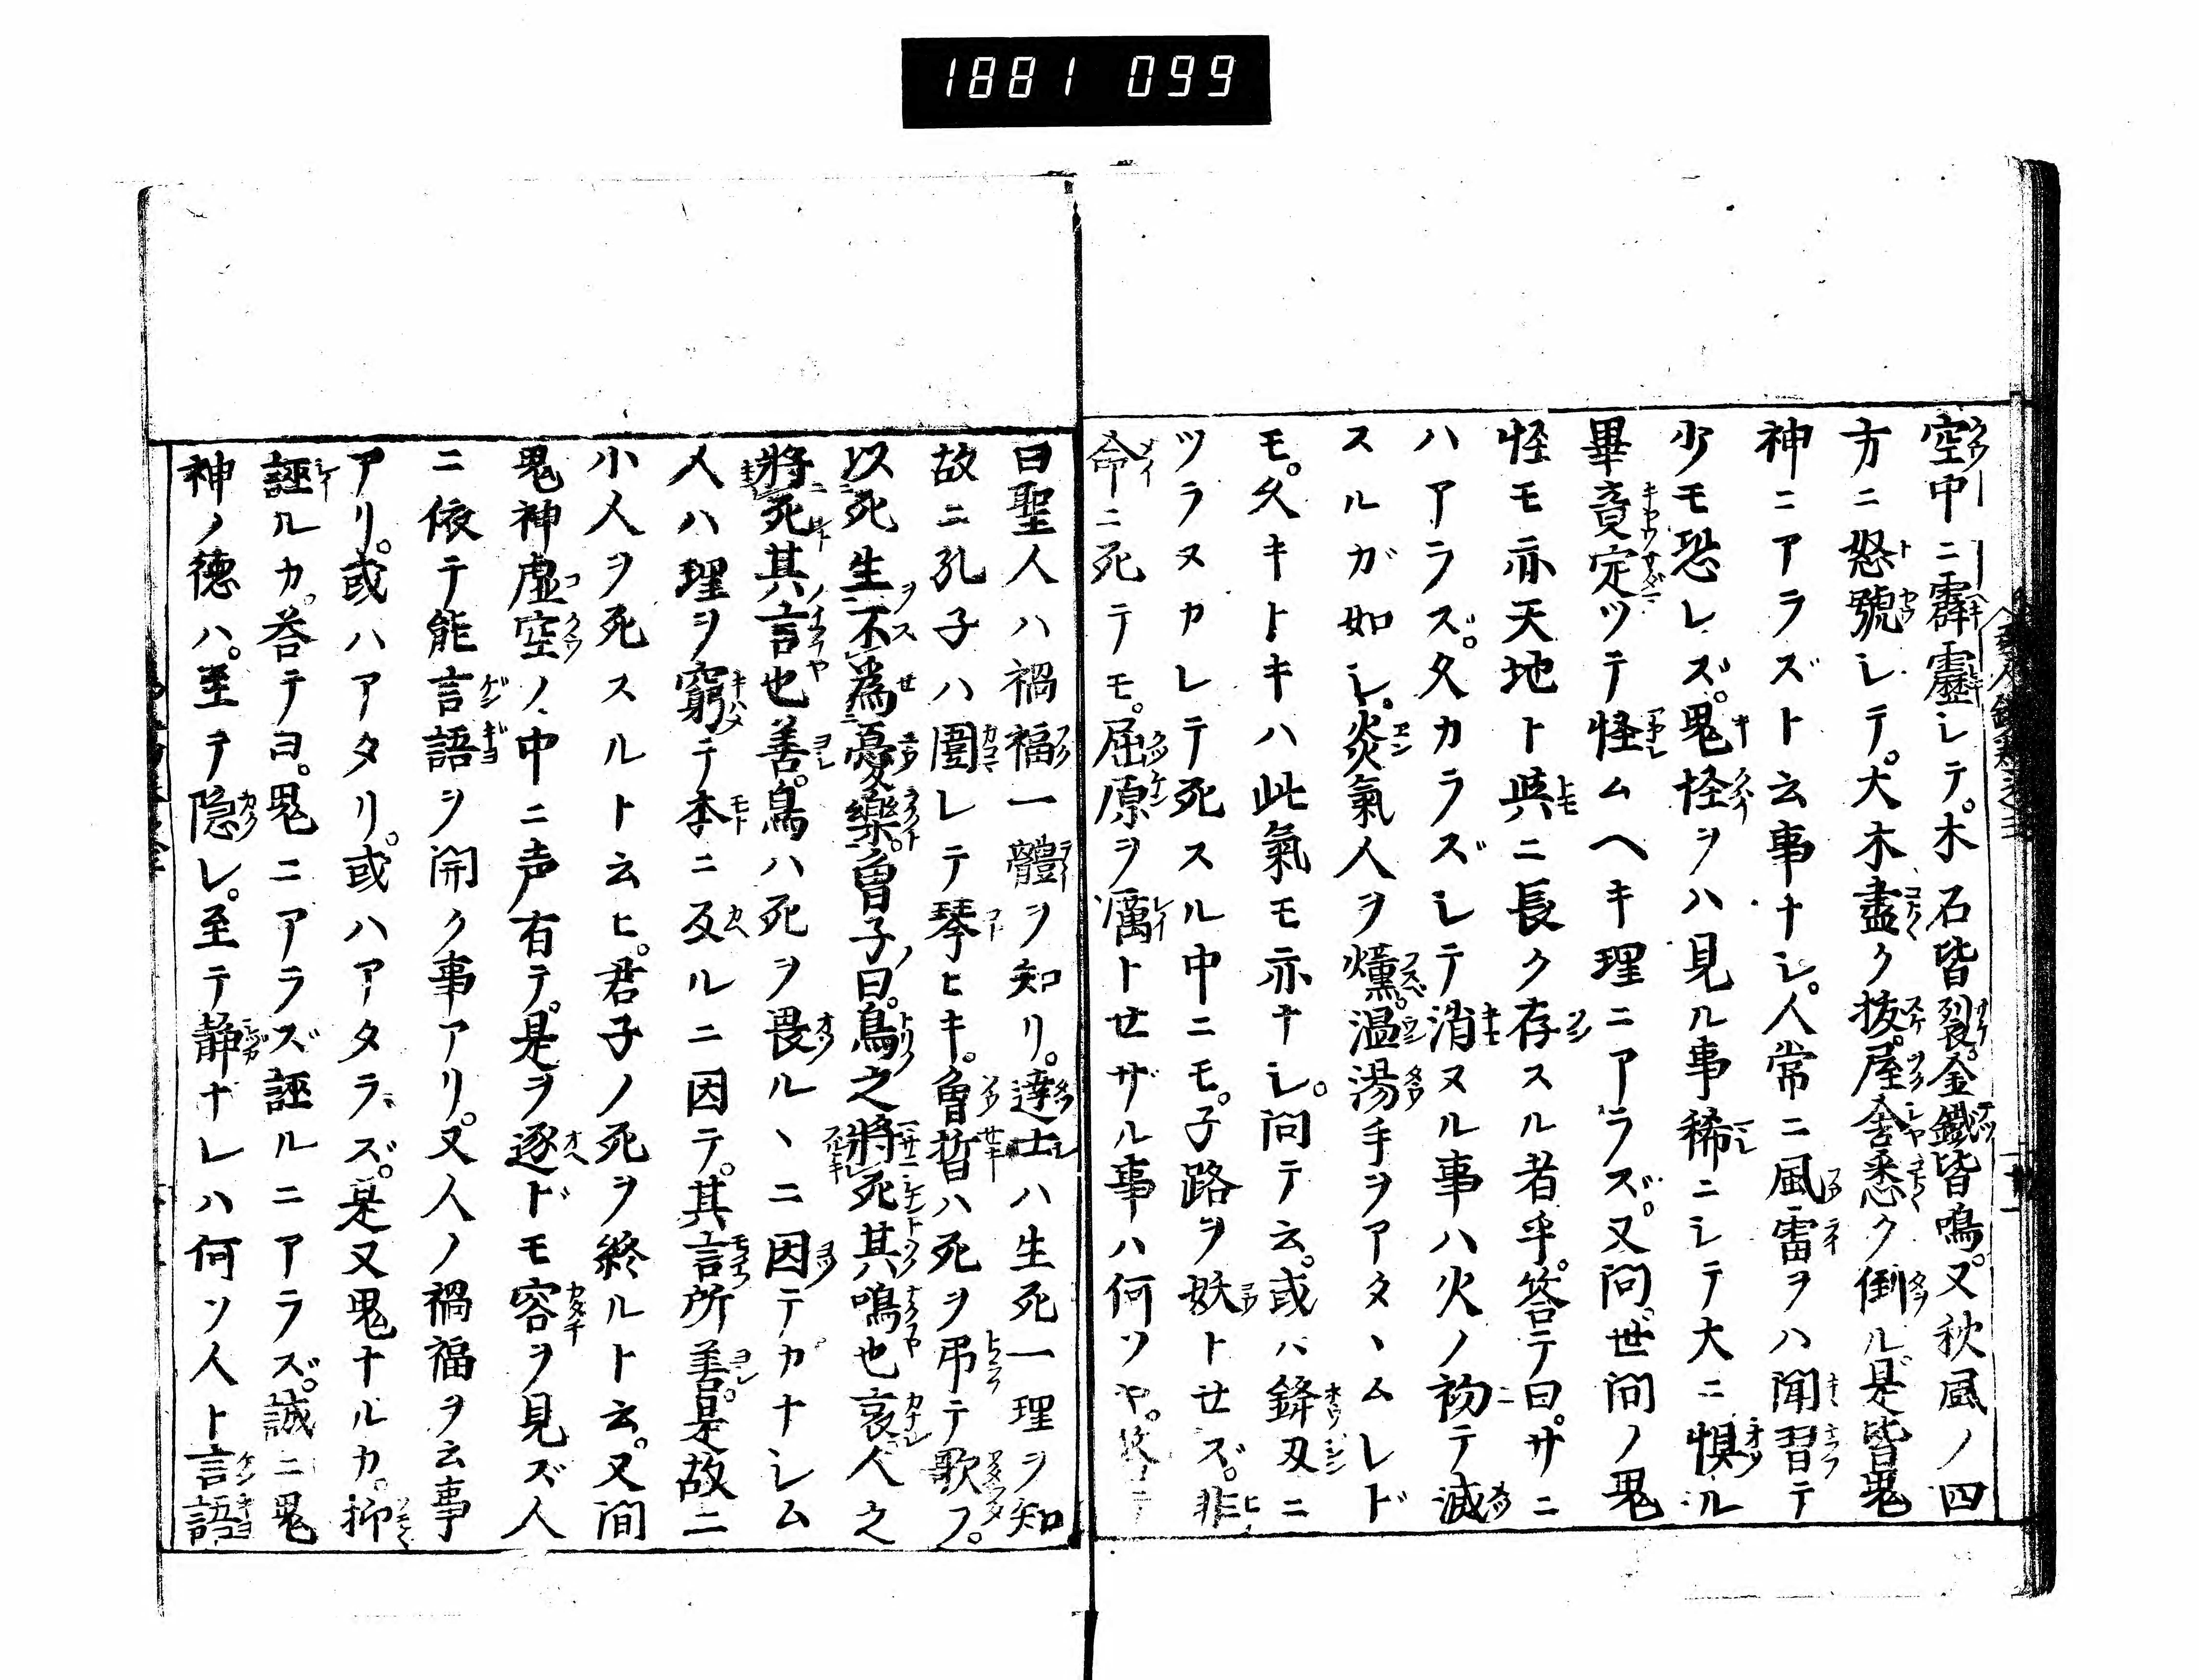 1881 099
空中ニ霹靂シテ。木石皆裂。金鐵皆鳴。又秋風ノ四
方ニ怒號シテ。大木盡ク抜。屋舎悉ク倒ル是皆鬼
神ニアラズト云事ナシ。人常ニ風雷ヲハ聞習テ
少モ恐レズ。鬼怪ヲハ見ル事稀ニシテ大ニ惧ル
畢竟定ツテ怪ムヘキ理ニアラズ。又問。世間ノ鬼
怪モ亦天地ト與ニ長ク存スル者乎。答テ曰。サニ
ハアラズ。久カラズシテ消ヌル事ハ火ノ初テ滅
スルガ如シ。炎氣人ヲ燻。温湯手ヲアタヽムレド
モ。久キトキハ此氣モ亦ナシ。問テ云。或ハ鋒刄ニ
ツラヌカレテ死スル中ニモ。子路ヲ妖トセズ。非
命ニ死テモ。屈原ヲ癘トせザル事ハ何ソヤ。答テ
曰聖人ハ禍福一體ヲ知リ。達士ハ生死一理ヲ知
故ニ孔子ハ圍レテ琴ヒキ。曾晳ハ死ヲ弔テ歌フ。
以死生不為憂樂。曾子曰。鳥之將死其鳴也哀人之
將死其言也善。鳥ハ死ヲ畏ルヽニ因テカナシム
人ハ理ヲ窮テ本ニ反ルニ因テ。其言所善。是故ニ
小人ヲ死スルト云ヒ。君子ノ死ヲ終ルト云。又問
鬼神虚空ノ中ニ声有テ。是ヲ逐ドモ容ヲ見ズ人
ニ依テ能言語ヲ開ク事アリ。又人ノ禍福ヲ云事
アリ。或ハアタリ。或ハアタラズ。是又鬼ナルカ。抑
誣ルカ。答テヨ。鬼ニアラズ誣ルニアラズ。誠ニ鬼
神ノ徳ハ。至テ隠レ。至テ静ナレハ何ソ人ト言語